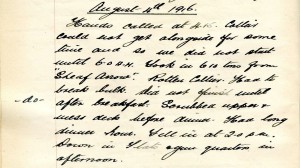 August 4th 1916.
Hands called at 4.   . Collier
could not get alongside for some
time and so we did not start
until 6.0 A.M. Took in 610 tons from
"Sheaf Arrow". Rotten Collier. Had to
break bulk. did not finish until
after breakfast. Scrubbed upper &
mess deck before dinner. Had long
dinner hour. Fell in at 2.0 P.M.
-do-
Down in   gun quarters in
afternoon.